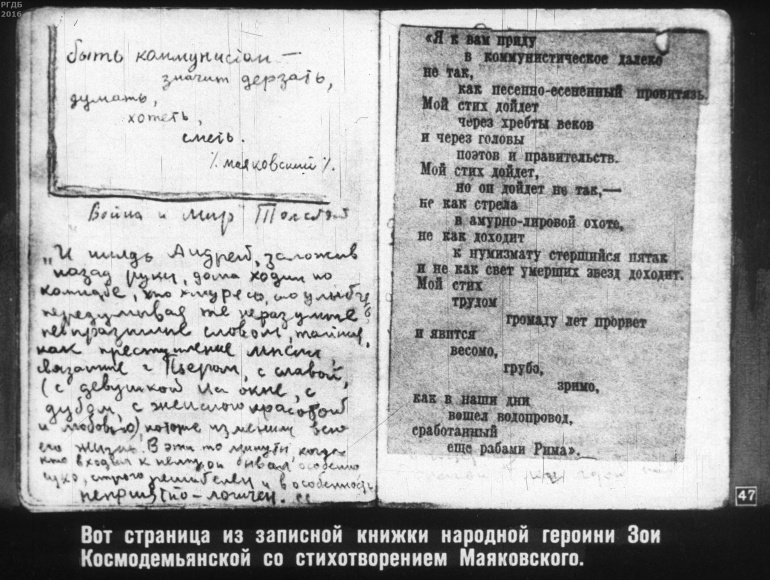 РГДБ
2016
быть коммунистом —
значит дерзать,
думать,
хотеть,
сметь.
/. маяковский /.
Война и мир Толстой
„И князь Андрей, заложив
назад руки, долго ходил по
комнате, то хмурясь, то улыбаясь
передумывая те неразумные
невыразимые словом, тайные,
как преступление мысли,
связанные с Пьером, с славой,
(с девушкой на окне, с
дубом, с женской красотой
и любовью) которые изменили всю
его жизнь. В эти то минуты, когда
кто входил к нему, он бывал особенно
сухо, строго решителен и в особенности
неприятно-логичен. "
«Я к вам приду
в коммунистическое далеко
не так,
как песенно-есененный провитязь.
Мой стих дойдет
через хребты веков
и через головы
поэтов и правительств.
Мой стих дойдет,
но он дойдет не так,—
не как стрела
в амурно-лировой охоте,
не как доходит
к нумизмату стершийся пятак
и не как свет умерших звезд доходит.
Мой стих
трудом
громаду лет прорвет
и явится
весомо,
грубо,
зримо,
как в наши дни
вошел водопровод,
сработанный
еще рабами Рима».
47
Вот страница из записной книжки народной героини Зои
Космодемьянской со стихотворением Маяковского.